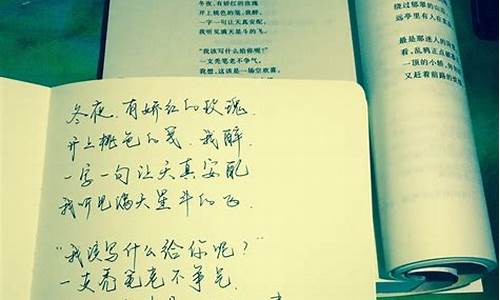 冬夜，有娇红的玫瑰
开上桃色的笺，我醉，
一字一句让天真安配，
我听见满天星斗的飞。
“我该写什么给你呢？”
一支秃笔老不争气，
我想，这该是一场空欢喜，
绕过郁翠的山
远亭里有人在
最是那迷人的
看，乱鸦正点破
一顶的小轿，
又赶着前路的
冬夜、有娇红的玫瑰、
开上桃色的笺、我醉、
一字一句让天真安配
我听见满天星斗的飞、
“我该写什么给你呢？”
一支秃笔老不争气、